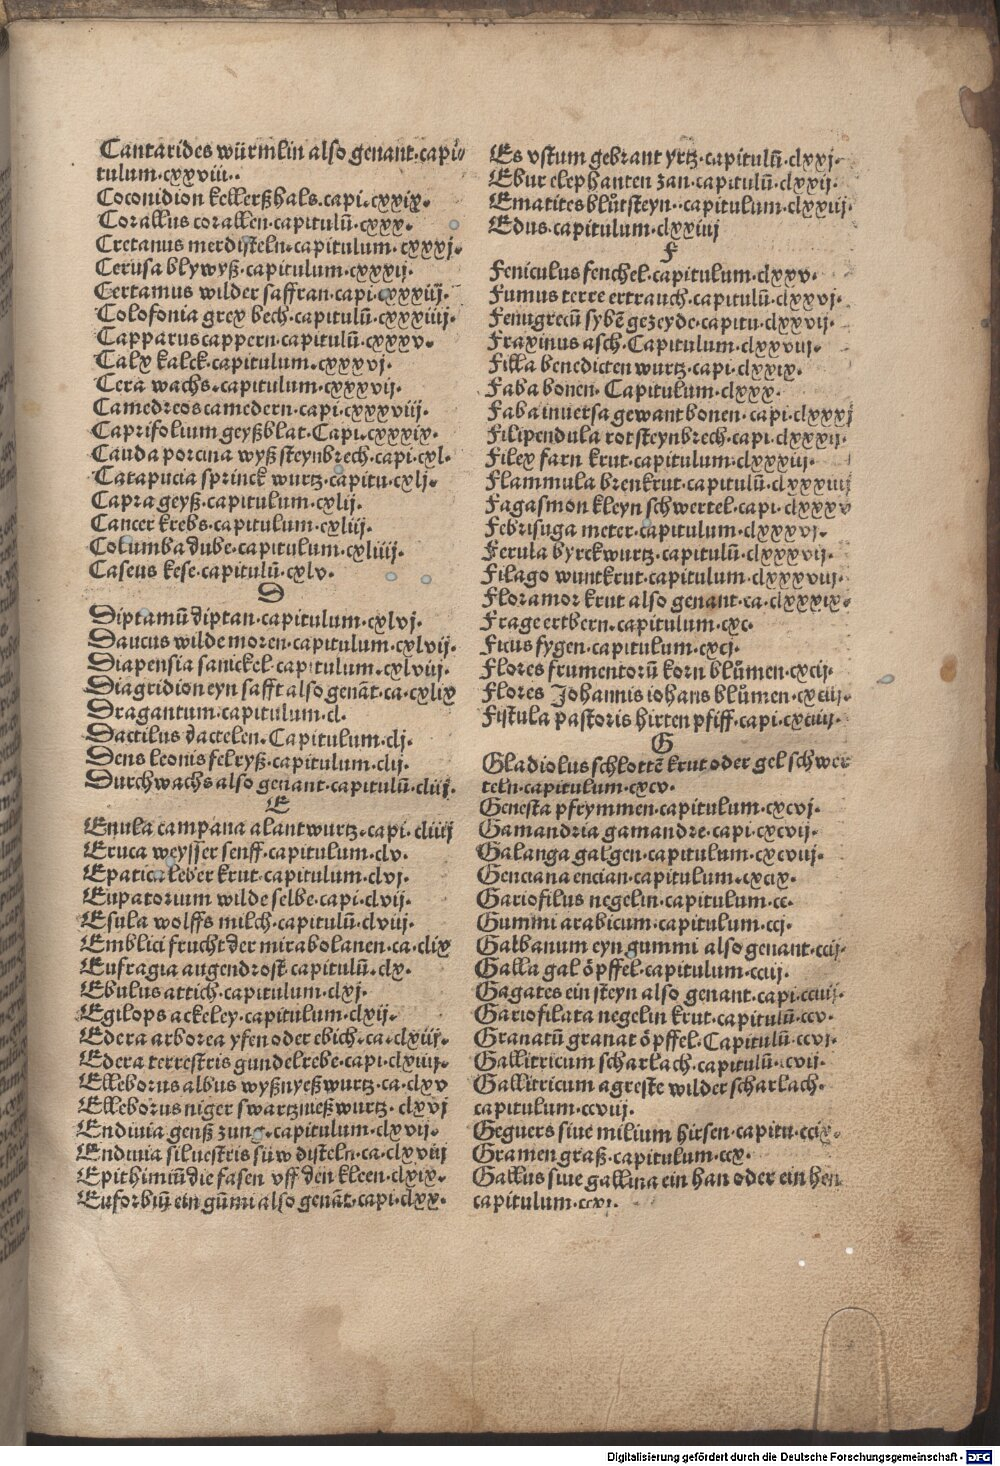 Cantarides würmlin also genant·capi⸗
tulum·cxxviii··
Coconidion kellerßhals·capi·cxxix·
Corallus corallen·capitulū·cxxx·
Cretanus merdisteln·capitulum·cxxxj·
Cerusa blywyß·capitulum·cxxxij·
Certamus wilder saffran·capi·cxxxiij·
Colofonia grex bech·capitulū·cxxxiiij·
Capparus cappern·capitulū·cxxxv·
Calx kalck·capitulum·cxxxvj·
Cera wachs·capitulum·cxxxvij·
Camedreos camedern·capi·cxxxviij·
Caprifolium geyßblat·Capi·cxxxix·
Cauda porcina wyß steynbrech·capi·cxl·
Catapucia sprinck wurtz·capitu·cxlj·
Capra geyß·capitulum·cxlij·
Cancer krebs·capitulum·cxliij·
Columba dube·capitulum·cxliiij·
Caseus kese·capitulū·cxlv·
D
Diptamū diptan·capitulum·cxlvj·
Daucus wilde moren·capitulum·cxlvij·
Diapensia sanickel·capitulum·cxlviij·
Diagridion eyn safft also genāt·ca·cxlix
Dragantum·capitulum·cl·
Dactilus dactelen·Capitulum·clj·
Dens leonis felryß·capitulum·clij·
Durchwachs also genant·capitulū·cliij·
E
Enula campana alantwurtz·capi·cliiij
Eruca weysser senff·capitulum·clv·
Epatica leber krut·capitulum·clvj·
Eupatorium wilde selbe·capi·clvij·
Esula wolffs milch·capitulū·clviij·
Emblici frucht der mirabolanen·ca·clix
Eufragia augendrost·capitulū·clx·
Ebulus attich·capitulum·clxj·
Egilops ackeley·capitulum·clxij·
Edera arborea yfen oder ebich·ca·clxiij·
Edera terrestris gundelrebe·capi·clxiiij·
Elleborus albus wyßnyeßwurtz·ca·clxv
Elleborus niger swartznießwurtz·clxvj
Endivia genß zung·capitulum·clxvij·
Endivia silvestris süw disteln·ca·clxviij
Epithimiū die fasen vff den kleen·clxix·
Euforbiū ein gūmi also genāt·capi·clxx·
Es vstum gebrant yrtz·capitulū·clxxj·
Ebur elephanten zan·capitulū·clxxij·
Ematites blůtsteyn··capitulum·clxxiij·
Edus·capitulum·clxxiiij
F
Feniculus fenchel·capitulum·clxxv·
Fumus terre ertrauch·capitulū·clxxvj·
Fenugrecū sybē gezeyde·capitu·clxxvij·
Fraxinus asch·Capitulum·clxxviij·
Filla benedicten wurtz·capi·clxxix·
Faba bonen·Capitulum·clxxx·
Faba inversa gewant bonen·capi·clxxxj
Filipendula rot steynbrech·capi·clxxxij·
Filex farn krut·capitulum·clxxxiij·
Flammula brenkrut·capitulū·clxxxiiij
Fagasmon kleyn schwertel·capi·clxxxv
Febrifuga meter·capitulum·clxxxvj·
Ferula byrckwurtz·capitulū·clxxxvij·
Filago wuntkrut·capitulum·clxxxviij·
Floramor krut also genant·ca·clxxxix·
Frage ertbern·capitulum·cxc·
Ficus fygen·capitulum·cxcj·
Flores frumentorū korn blůmen·cxcij·
Flores Johannis iohans blůmen·cxciij·
Fistula pastoris hirten pfiff·capi·cxciiij·
G
Gladiolus schlottē krut oder gel schwer
teln·capitulum·cxcv·
Genesta pfrymmen·capitulum·cxcvj·
Gamandria gamandre·capi·cxcvij·
Galanga galgen·capitulum·cxcviij·
Genciana encian·capitulum·cxcix·
Gariofilus negelin·capitulum·cc·
Gummi arabicum·capitulum·ccj·
Galbanum eyn gummi also genant·ccij·
Galla gal öpffel·capitulum·cciij·
Gagates ein steyn also genant·capi·cciiij·
Gariofilata negelin krut·capitulū·ccv·
Granatū granat öpffel·Capitulū·ccvj·
Gallitricum scharlach·capitulū·ccvij·
Gallitricum agreste wilder scharlach·
capitulum·ccviij·
Geguers sive milium hirsen·capitu·ccix·
Gramen graß·capitulum·ccx·
Gallus sive gallina ein han oder ein hen
capitulum·ccxj·
Digitalisierung gefördert durch die Deutsche Forschungsgemeinschaft - DFG